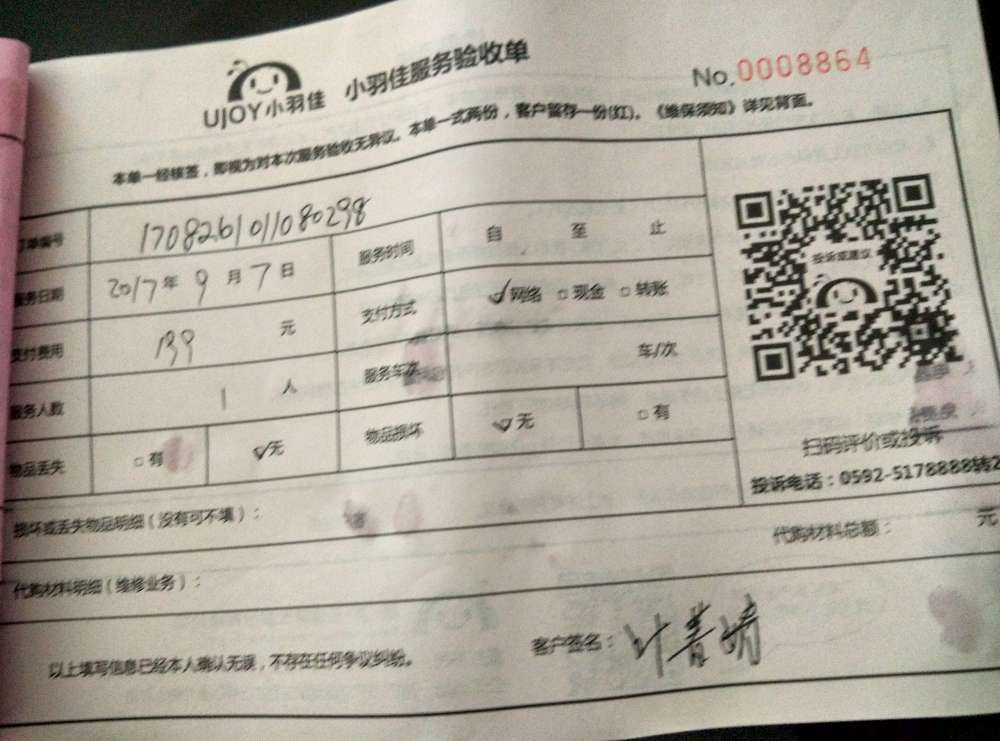 UJOY小羽佳 小羽佳服务验收单 No.0008864
本单一经核签，即视为对本次服务验收无异议。本单一式两份，客户留存一份(红)。《维保须知》详见背面。
订单编号 170826101108029８
服务日期 2017年9月7日 服务时间 自 至 止
支付费用 139 元 支付方式 ☑网络 □现金 □转账
服务人数 1 人 服务车次 车/次
物品丢失 □有 ☑无 物品损坏 ☑无 □有
投诉或建议
扫码评价或投诉
投诉电话：0592-5178888转2
损坏或丢失物品明细（没有可不填）：
代购材料总额： 元
代购材料明细（维修业务）：
以上填写信息已经本人确认无误，不存在任何争议纠纷。 客户签名：